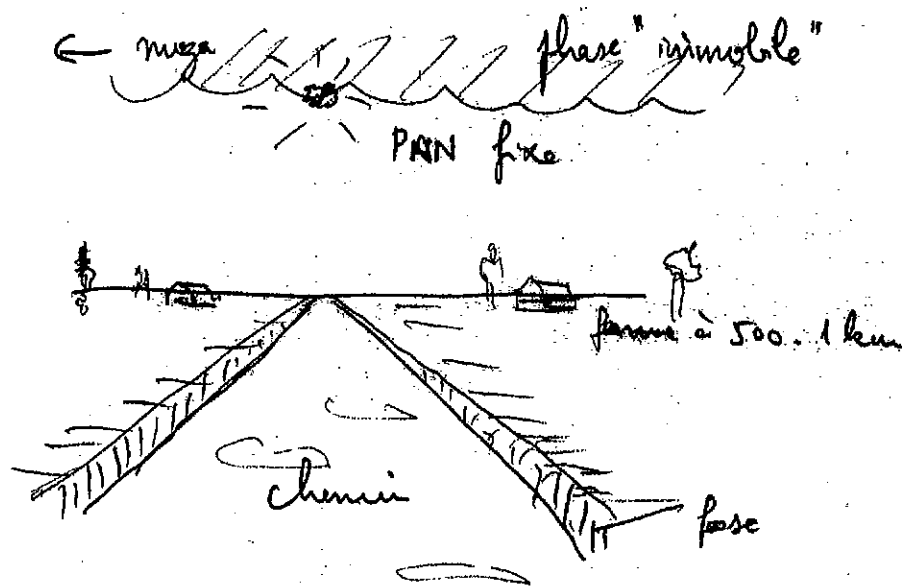 ← nuage phase "immobile"
PAN fixe
ferme à 500. 1 km
chemin
fosse